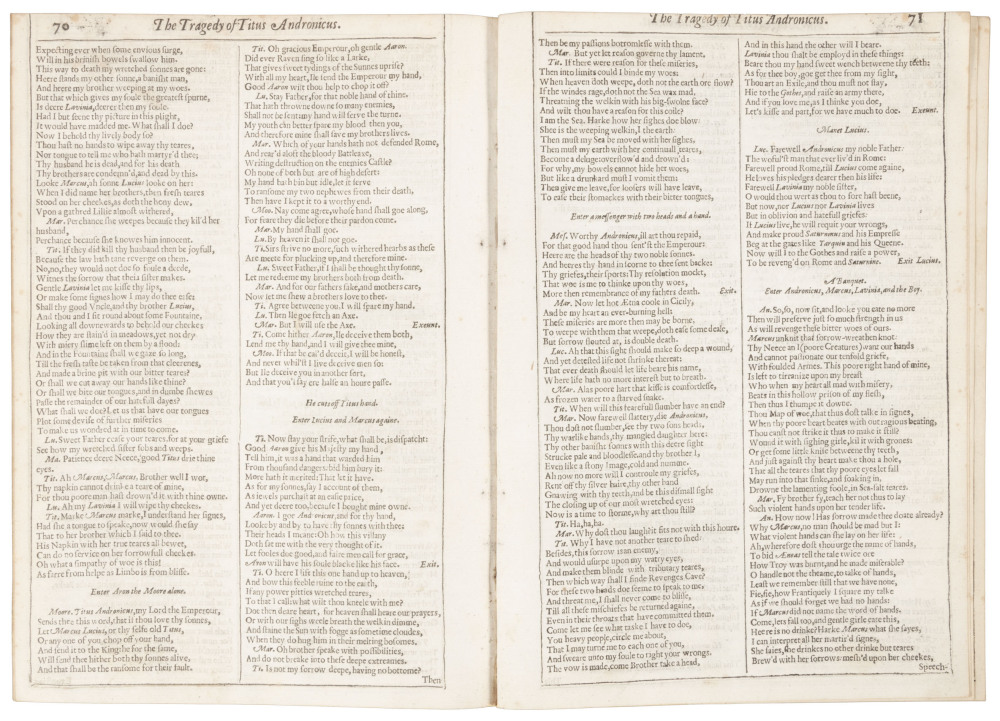 70 The Tragedy of Titus Andronicus.
Expecting ever when some envious surge,
Will in his brinish bowels swallow him.
This way to death my wretched sonnes are gone:
Heere stands my other sonne, a banisht man,
And heere my brother weeping at my woes.
But that which gives my soule the greatest spurne,
Is deere Lavinia, deerer then my soule.
Had I but seene thy picture in this plight,
It would have madded me. What shall I doe?
Now I behold thy lively body so?
Thou hast no hands to wipe away thy teares,
Nor tongue to tell me who hath martyr'd thee;
Thy husband he is dead, and for his death
Thy brothers are condemn'd, and dead by this.
Looke Marcus, ah sonne Lucius looke on her:
When I did name her brothers, then fresh teares
Stood on her cheekes, as doth the hony dew,
Vpon a gathred Lillie almost withered,
Mar. Perchance she weepes because they kil'd her
husband,
Perchance because she knowes him innocent.
Tit. If they did kill thy husband then be joyfull,
Because the law hath tane revenge on them.
No, no, they would not doe so foule a deede,
Witnes the sorrow that their sister makes.
Gentle Lavinia let me kisse thy lips,
Or make some signes how I may do thee ease:
Shall thy good Vncle, and thy brother Lucius,
And thou and I sit round about some Fountaine,
Looking all downewards to behold our cheekes
How they are stain'd in meadowes, yet not dry
With miery slime left on them by a flood:
And in the Fountaine shall we gaze so long,
Till the fresh taste be taken from that cleerenes,
And made a brine pit with our bitter teares?
Or shall we cut away our hands like thine?
Or shall we bite our tongues, and in dumbe shewes
Passe the remainder of our hatefull dayes?
What shall we doe? Let us that have our tongues
Plot some devise of further miseries
To make us wondred at in time to come.
Lu. Sweet Father cease your teares, for at your griefe
See how my wretched sister sobs and weeps.
Ma. Patience deere Neece, good Titus drie thine
eyes.
Tit. Ah Marcus, Marcus, Brother well I wot,
Thy napkin cannot drinke a teare of mine,
For thou poore man hast drown'd it with thine owne.
Lu. Ah my Lavinia I will wipe thy cheekes.
Tit. Marke Marcus marke, I understand her signes,
Had she a tongue to speake, now would she say
That to her brother which I said to thee.
His Napkin with her true teares all bewet,
Can do no service on her sorrowfull cheekes.
Oh what a simpathy of woe is this!
As farre from helpe as Limbo is from blisse.
Enter Aron the Moore alone.
Moore. Titus Andronicus, my Lord the Emperour,
Sends thee this word, that if thou love thy sonnes,
Let Marcus Lucius, or thy selfe old Titus,
Or any one of you, chop off your hand,
And send it to the King: he for the same,
Will send thee hither both thy sonnes alive,
And that shall be the ransome for their fault.
Tit. Oh gracious Emperour, oh gentle Aaron.
Did ever Raven sing so like a Larke,
That gives sweet tydings of the Sunnes uprise?
With all my heart, Ile send the Emperour my hand,
Good Aaron wilt thou help to chop it off?
Lu. Stay Father, for that noble hand of thine.
That hath throwne downe so many enemies,
Shall not be sent: my hand will serve the turne.
My youth can better spare my blood then you,
And therefore mine shall save my brothers lives.
Mar. Which of your hands hath not defended Rome,
And rear'd aloft the bloody Battleaxe,
Writing destruction on the enemies Castle?
Oh none of both but are of high desert:
My hand hath bin but idle, let it serve
To ransome my two nephewes from their death,
Then have I kept it to a worthy end.
Moo. Nay come agree, whose hand shall goe along,
For feare they die before their pardon come.
Mar. My hand shall goe.
Lu. By heaven it shall not goe.
Ti. Sirs strive no more, such withered hearbs as these
Are meete for plucking up, and therefore mine.
Lu. Sweet Father, if I shall be thought thy sonne,
Let me redeeme my brothers both from death.
Mar. And for our fathers sake, and mothers care,
Now let me shew a brothers love to thee.
Ti. Agree betweene you. I will spare my hand.
Lu. Then Ile goe fetch an Axe.
Mar. But I will use the Axe. Exeunt.
Ti. Come hither Aaron, Ile deceive them both,
Lend me thy hand, and I will give thee mine,
Moo. If that be cal'd deceit, I will be honest,
And never whil'st I live deceive men so:
But Ile deceive you in another sort,
And that you'l say ere halfe an houre passe.
He cuts off Titus hand.
Enter Lucius and Marcus againe.
Ti. Now stay your strife, what shall be, is dispatcht:
Good Aaron give his Majesty my hand,
Tell him, it was a hand that warded him
From thousand dangers: bid him bury it:
More hath it merited: That let it have.
As for my sonnes, say I account of them,
As jewels purchast at an easie price,
And yet deere too, because I bought mine owne.
Aaron. I goe Andronicus, and for thy hand,
Looke by and by to have thy sonnes with thee:
Their heads I meane: Oh how this villany
Doth fat me with the very thought of it.
Let fooles doe good, and faire men call for grace,
Aron will have his soule blacke like his face. Exit.
Ti. O heere I lift this one hand up to heaven,
And bow this feeble ruine to the earth,
If any power pitties wretched teares,
To that I call: what wilt thou kneele with me?
Doe then deare heart, for heaven shall heare our prayers,
Or with our sighs weele breath the welkin dimme,
And staine the Sun with fogge as sometime cloudes,
When they do hug him in their melting bosomes.
Mar. Oh brother speake with possibilities,
And do not breake into these deepe extreames.
Ti. Is not my sorrow deepe, having no bottome?
Then
The Tragedy of Titus Andronicus. 71
Then be my passions bottomlesse with them.
Mar. But yet let reason governe thy lament.
Tit. If there were reason for these miseries,
Then into limits could I binde my woes:
When heaven doth weepe, doth not the earth ore flow?
If the windes rage, doth not the Sea wax mad,
Threatning the welkin with his big-swolne face?
And wilt thou have a reason for this coile?
I am the Sea. Harke how her sighes doe blow:
Shee is the weeping welkin, I the earth:
Then must my Sea be moved with her sighes,
Then must my earth with her continuall teares,
Become a deluge: overflow'd and drown'd:
For why, my bowels cannot hide her woes,
But like a drunkard must I vomit them:
Then give me leave, for loosers will have leave,
To ease their stomackes with their bitter tongues,
Enter a messenger with two heads and a hand.
Mes. Worthy Andronicus, ill art thou repaid,
For that good hand thou sent'st the Emperour:
Heere are the heads of thy two noble sonnes.
And heeres thy hand in scorne to thee sent backe:
Thy griefes, their sports: Thy resolution mockt,
That woe is me to thinke upon thy woes,
More then remembrance of my fathers death. Exit.
Mar. Now let hot Ætna coole in Cicily,
And be my heart an ever-burning hell:
These miseries are more then may be borne,
To weepe with them that weepe, doth ease some deale,
But sorrow flouted at, is double death.
Luc. Ah that this sight should make so deep a wound,
And yet detested life not shrinke thereat:
That ever death should let life beare his name,
Where life hath no more interest but to breath.
Mar. Alas poore hart that kisse is comfortlesse,
As frozen water to a starved snake.
Tit. When will this fearefull slumber have an end?
Mar. Now farewell flattery, die Andronicus,
Thou dost not slumber, see thy two sons heads,
Thy warlike hands, thy mangled daughter here:
Thy other banisht sonnes with this deere sight
Strucke pale and bloodlesse, and thy brother I,
Even like a stony Image, cold and numme.
Ah now no more will I controule my griefes,
Rent off thy silver haire, thy other hand
Gnawing with thy teeth, and be this dismall sight
The closing up of our most wretched eyes:
Now is a time to storme, why art thou still?
Tit. Ha, ha, ha.
Mar. Why dost thou laugh? it fits not with this houre.
Tit. Why I have not another teare to shed:
Besides, this sorrow is an enemy,
And would usurpe upon my watry eyes,
And make them blinde with tributary teares,
Then which way shall I finde Revenges Cave?
For these two heads doe seeme to speake to me,
And threat me, I shall never come to blisse,
Till all these mischiefes be returned againe,
Even in their throats that have committed them.
Come let me see what taske I have to doe,
You heavy people, circle me about,
That I may turne me to each one of you,
And sweare unto my soule to right your wrongs.
The vow is made, come Brother take a head,
And in this hand the other will I beare.
Lavinia thou shalt be employd in these things:
Beare thou my hand sweet wench betweene thy teeth:
As for thee boy, goe get thee from my sight,
Thou art an Exile, and thou must not stay,
Hie to the Gothes, and raise an army there,
And if you love me, as I thinke you doe,
Let's kisse and part, for we have much to doe. Exeunt.
Manet Lucius.
Luc. Farewell Andronicus my noble Father:
The woful'st man that ever liv'd in Rome:
Farewell proud Rome, till Lucius come againe,
He loves his pledges dearer then his life:
Farewell Lavinia my noble sister,
O would thou wert as thou to fore hast beene,
But now, nor Lucius nor Lavinia lives
But in oblivion and hatefull griefes:
If Lucius live, he will requit your wrongs,
And make proud Saturninus and his Empresse
Beg at the gates like Tarquin and his Queene.
Now will I to the Gothes and raise a power,
To be reveng'd on Rome and Saturnine. Exit Lucius.
A Banquet.
Enter Andronicus, Marcus, Lavinia, and the Boy.
An. So, so, now sit, and looke you eate no more
Then will preserve just so much strength in us
As will revenge these bitter woes of ours.
Marcus unknit that sorrow-wreathen knot:
Thy Neece and I (poore Creatures) want our hands
And cannot passionate our tenfold griefe,
With foulded Armes. This poore right hand of mine,
Is left to tirranize upon my breast
Who when my heart all mad with misery,
Beats in this hollow prison of my flesh,
Then thus I thumpe it downe.
Thou Map of woe, that thus dost talke in signes,
When thy poore heart beates with outragious beating,
Thou canst not strike it thus to make it still?
Wound it with sighing girle, kil it with grones:
Or get some little knife betweene thy teeth,
And just against thy heart make thou a hole,
That all the teares that thy poore eyes let fall
May run into that sinke, and soaking in,
Drowne the lamenting foole, in Sea-salt teares.
Mar. Fy brother fy, teach her not thus to lay
Such violent hands upon her tender life.
An. How now! Has sorrow made thee doate already?
Why Marcus, no man should be mad but I:
What violent hands can she lay on her life:
Ah, wherefore dost thou urge the name of hands,
To bid Æneas tell the tale twice ore
How Troy was burnt, and he made miserable?
O handle not the theame, to talke of hands,
Least we remember still that we have none,
Fie, fie, how Frantiquely I square my talke
As if we should forget we had no hands:
If Marcus did not name the word of hands.
Come, lets fall too, and gentle girle eate this,
Heere is no drinke? Harke Marcus what she sayes,
I can interpret all her martir'd signes,
She saies, she drinkes no other drinke but teares
Brew'd with her sorrows mesh'd upon her cheekes,
Speech-